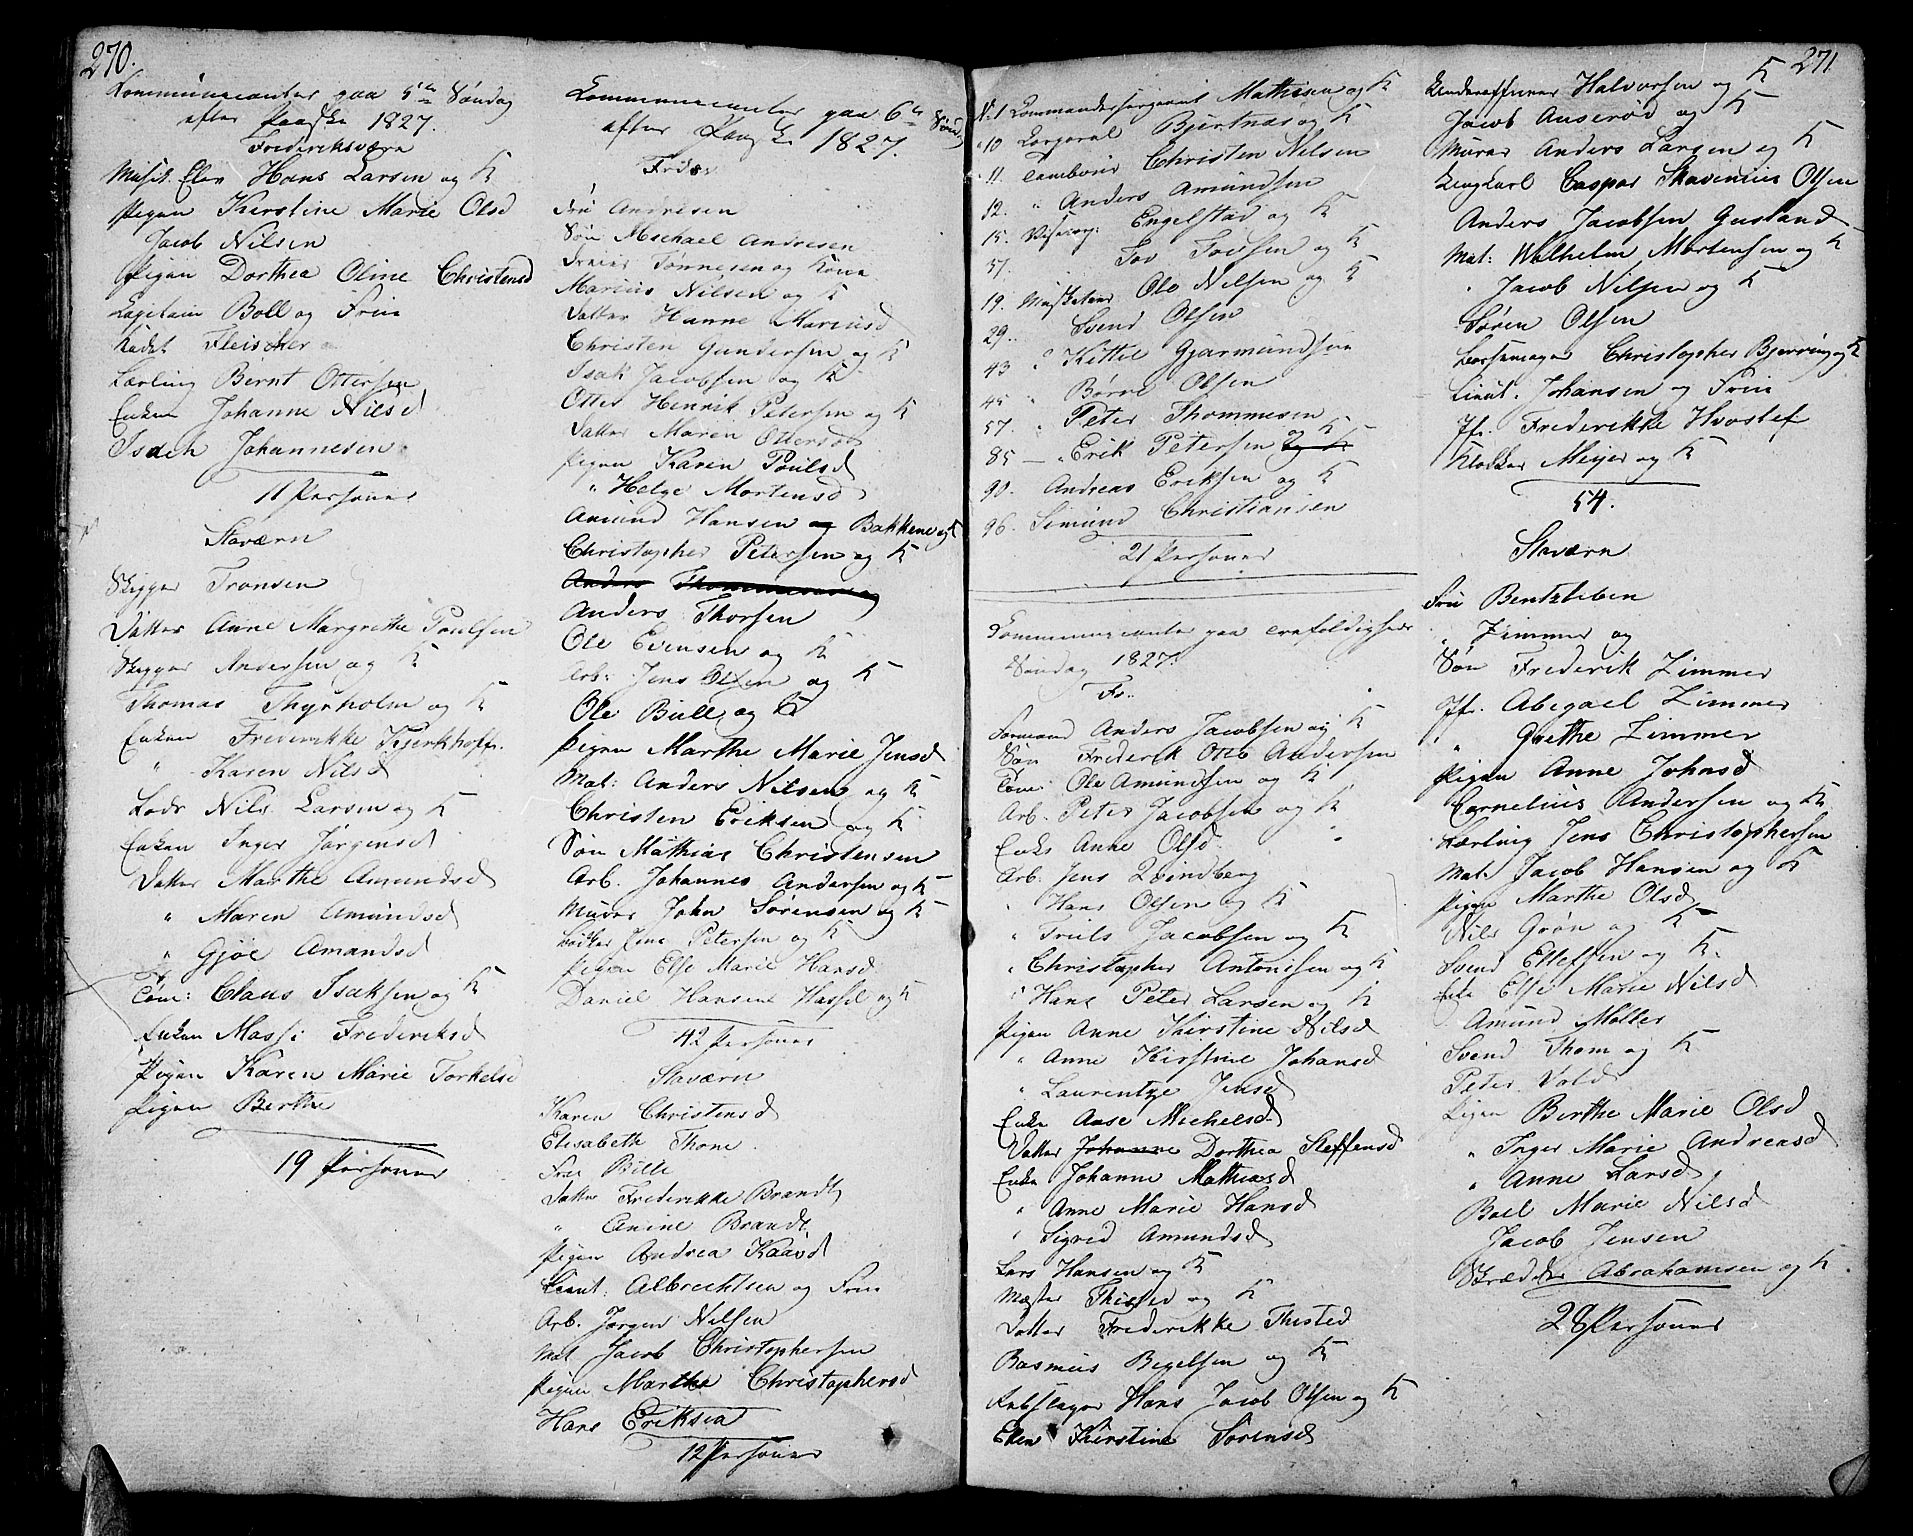 270.
Communicanter paa 5te Søndag
efter Paaske 1827.
Frederiksværn
Musik. Elev Hans Larsen og K
Pigen Kirstine Marie Olsd
Jacob Nilsen
Pigen Dorthea Oline Christensd
Capitain Boll og Frue
Kadet Fleischer
Lærling Bernt Ottersen
Enken Johanne Nilsd
Isach Johannesen
11 Personer
Staværn
Skipper Tronsen
Datter Anne Margrethe Poulsen
Skipper Andersen og K
Thomas Thyrholm og K
Enken Frederikke Kjerkhoff.
" Karen Nilsd
Lods Nils Larsen og K
Enken Inger Jørgensd
Datter Marthe Amundsd
" Maren Amundsd
" Gjøe Amandsd
Tøm: Claus Isaksen og K
Enken Massi Frederiksd
Pigen Karen Marie Torkelsd
Pigen Berthe
19 Personer
Communicanter paa 6te Sønd
efter Paaske 1827.
Frdsv
Fru Andresen
Søn Michael Andresen
Tønnesen og Kone
Marius Nilsen og K
Datter Hanne Mariusd
Christen Gundersen og K
Isak Jacobsen og K
Otter Henrik Petersen og K
Datter Maren Ottersd
Pigen Karen Poulsd
" Helge Mortensd
Amund Hansen og Bakkene og K
Christopher Petersen og K
Anders Thommesen og
Anders Thorsen
Ole Evensen og K
Arb: Jens Olsen og K
Ole Bull og K
Pigen Marthe Marie Jensd
Mat: Anders Nilsen og K
Christen Eriksen og K
Søn Mathias Christensen
Arb. Johannes Andersen og K
Murer John Sørensen og K
Bødker Jens Petersen og K
Pigen Else Marie Hansd
Daniel Hansen Hassel og K
42 Personer
Staværn
Karen Christensd
Elisabeth Thom
Frue Bille
Datter Frederikke Brandt
" Canine Brandt
Pigen Andrea Kaavd
Lieut: Albrechtsen og Frue
Arb. Jørgen Nilsen
Mat Jacob Christophersen
Pigen Marthe Christophersd
Hans Eriksen
12 Personer
271
No 1 Commandersergeant Mathisen og K
" 10 Corporal Bjertnæs og K
" 11. Tambour Christen Nilsen
12. " Anders Amundsen
15. Engelstad og K
57. Tov Tovsen og K
19. Musketeer Ole Nilsen og K
29. Svend Olsen
43 " Kittil Gjermundsen
45 " Børre Olsen
57. " Peter Thommesen
85 — " Erik Petersen og K
90. Andreas Eriksen og K
96. Simund Christiansen
21 Personer
Communicanter paa Trefoldigheds
Søndag 1827.
Fr.
Formand Anders Jacobsen og K
Søn Frederik Otto Andersen
Tøm: Ole Amundsen og K
Arb. Peter Jacobsen og K
Enke Anne Olsd.
Arb: Jens Qvindberg
" Hans Olsen og K
" Truls Jacobsen og K
" Christopher Antonisen og K
" Hans Peter Larsen og K
Pigen Anne Kirstine Nilsd
" Anne Kirstine Johansd
" Laurentze Jensd
Enke Aase Michelsd
Datter Johanne Dorthea Steffensd
Enke Johanne Mathiasd
" Anne Marie Hansd
" Sigrid Amundsd
Lars Hansen og K
Mester Thisted og K
Datter Frederikke Thisted
Rasmus Begelsen og K
Rebslager Hans Jacob Olsen og K
Enken Kirstine Sørensd
Underofficer Halvorsen og K
Jacob Auserød og K
Murer Anders Larsen og K
Caspar Skavenius Olsen
Anders Jacobsen Gusland
Mat: Wilhelm Mortensen og K
" Jacob Nilsen og K
Søren Olsen
Christopher Bjerring og K
Lieut. Johansen og Frue
Jfr. Frederikke Hvoslef
Klokker Meyer og K
54.
Staværn
Fru Bentzleben
" Zimmer og
Søn Frederik Zimmer
Jfr. Abigael Zimmer
" Grethe Zimmer
Pigen Anne Johnsd
Cornelius Andersen og K
Lærling Jens Christophersen
Mat. Jacob Hansen og K
Pigen Marthe Olsd
Nils Grøn og K
Svend Ellefsen og K
Enke Else Marie Nilsd
Amund Møller
Svend Thom og K
Peter Vold
Pigen Berthe Marie Olsd
" Inger Marie Andreasd
" Anne Larsd
Boel Marie Nilsd
Jacob Jensen
Skrædder Abrahamsen og K.
28 Personer